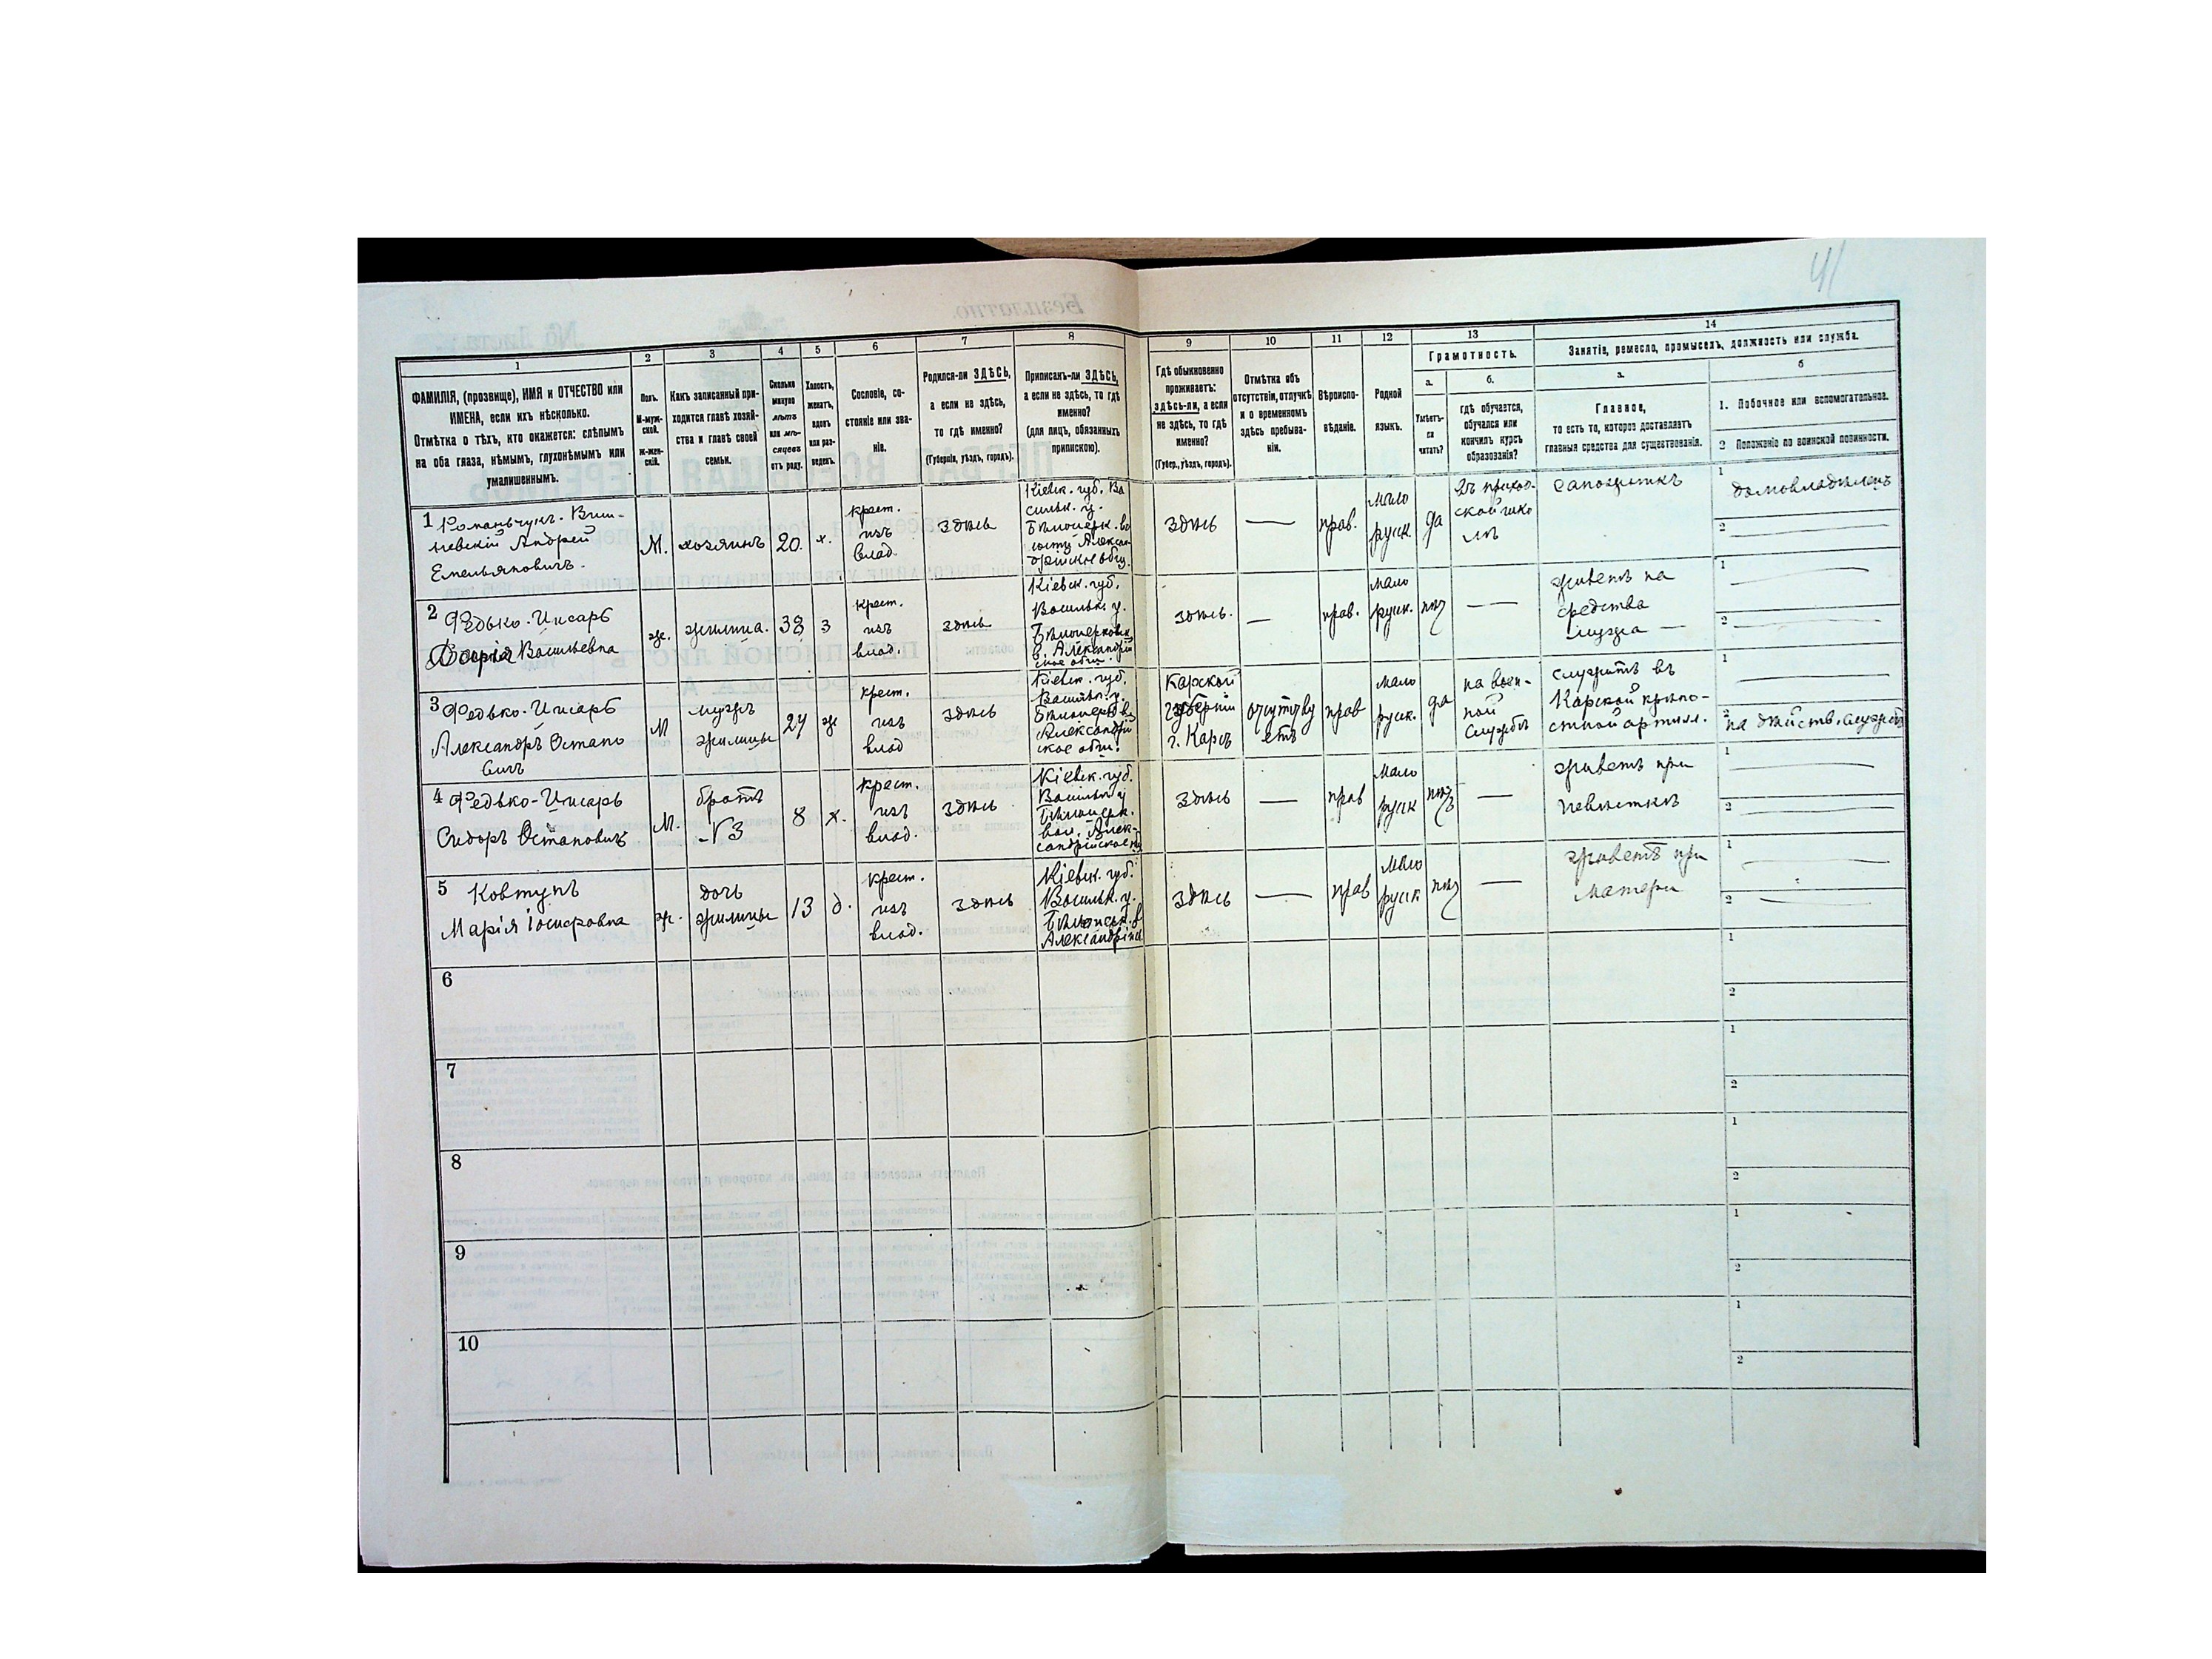 41
1
ФАМИЛІЯ, (прозвище), ИМЯ и ОТЧЕСТВО или
ИМЕНА, если ихъ нѣсколько.
Отмѣтка о тѣхъ, кто окажется: слѣпымъ
на оба глаза, нѣмымъ, глухонѣмымъ или
умалишеннымъ.
2
Полъ.
М-муж-
ской.
ж-жен-
скій.
3
Какъ записанный при-
ходится главѣ хозяй-
ства и главѣ своей
семьи.
4
Сколько
минуло
лѣтъ
или мѣ-
сяцевъ
отъ роду.
5
Холостъ,
женатъ,
вдовъ
или раз-
веденъ.
6
Сословіе, со-
стояніе или зва-
ніе.
7
Родился-ли ЗДѢСЬ,
а если не здѣсь,
то гдѣ именно?
(Губернія, уѣздъ, городъ).
8
Приписанъ-ли ЗДѢСЬ,
а если не здѣсь, то гдѣ
именно?
(для лицъ, обязанныхъ
припискою).
9
Гдѣ обыкновенно
проживаетъ:
здѣсь-ли, а если
не здѣсь, то гдѣ
именно?
(Губер., уѣздъ, городъ).
10
Отмѣтка объ
отсутствіи, отлучкѣ
и о временномъ
здѣсь пребыва-
ніи.
11
Вѣроиспо-
вѣданіе.
12
Родной
языкъ.
13
Грамотность.
а.
Умѣетъ-
ли
читать?
б.
гдѣ обучается,
обучался или
кончилъ курсъ
образованія?
14
Занятіе, ремесло, промыселъ, должность или служба.
а.
Главное,
то есть то, которое доставляетъ
главныя средства для существованія.
б
1. Побочное или вспомогательное.
2 Положеніе по воинской повинности.
1 Романьчукъ. Виш-
невскій Андрей
Емельяновичъ.
М.
хозяинъ
20.
х.
крест.
изъ
влад.
здѣсь
Кіевск. губ. Ва
сильк. у.
Бѣлоцерк. во
лость Алексан
дрійское общ.
здѣсь
—
прав.
мало
русск.
да
въ приход-
ской шко
лѣ
сапожникъ
1 домовладѣлецъ
2
2 Федько-Писарь
Васильевна
ж.
жилица.
38
з
крест.
изъ
влад.
здѣсь
Кіевск. губ.
Васильк. у.
Бѣлоцерковск.
в. Александрій
ское общ.
здѣсь.
—
прав.
мало
русск.
нѣтъ
—
живетъ на
средства
мужа —
1
2
3 Федько-Писарь
Александръ Остапо
вичъ
М
мужъ
жилицы
27
ж
крест.
изъ
влад
здѣсь
Кіевск. губ.
Васильк. у.
Бѣлоцерк. в.
Александрій
ское общ.
Карской
губерніи
г. Карсъ
отсутству
етъ
прав
мало
русск.
да
на воен-
ной
службѣ
служитъ въ
Карской крѣпо-
стной артилл.
1
2 на дѣйств. службѣ
4 Федько-Писарь
Сидоръ Остаповичъ
М.
братъ
-№3
8
х.
крест.
изъ
влад.
здѣсь
Кіевск. губ.
Васильк. у
Бѣлоцерк.
вол. Алек-
сандрійское
здѣсь
—
прав
мало
русск
нѣтъ
—
живетъ при
невѣсткѣ
1
2
5 Ковтунъ
Марія Іосифовна
ж.
дочь
жилицы
13
д.
крест.
изъ
влад.
здѣсь
Кіевск. губ.
Васильк. у.
Бѣлоцерк. в
здѣсь
—
прав
мало
русск
нѣтъ
—
живетъ при
матери
1
2
6
1
2
7
1
2
8
1
2
9
1
2
10
1
2